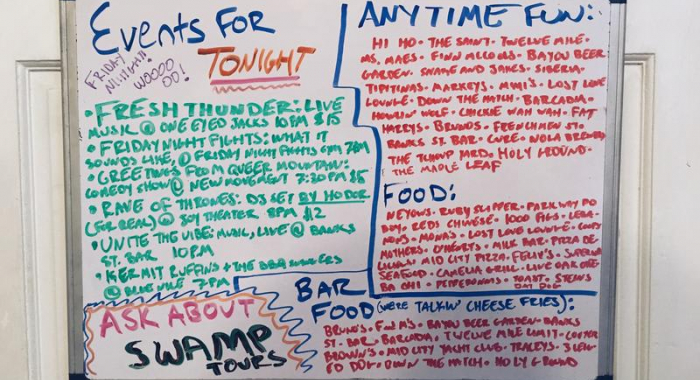 Events For
TONIGHT
FRIDAY
NIIIIGHT!
WOOOO
OO!
• FRESH THUNDER: LIVE
MUSIC @ ONE EYED JACKS 10PM $15
• FRIDAY NIGHT FIGHTS: WHAT IT
SOUNDS LIKE, @ FRIDAY NIGHT FIGHTS GYM 7PM
• GREETINGS FROM QUEER MOUNTAIN:
COMEDY SHOW @ NEW MOVEMENT 7:30PM $5
• RAVE OF THRONES: DJ SET BY HODOR
(FOR REAL) @ JOY THEATER 8PM $2
• UNITE THE VIBE: MUSIC, LIVE @ BANKS
ST. BAR 10PM
• KERMIT RUFFINS + THE BBQ
@ BLUE NILE 7PM
ASK ABOUT
SWAMP
TOURS
ANYTIME FUN:
HI HO • THE SAINT • TWELVE MILE •
MS. MAES • FINN MCCOOLS • BAYOU BEER
GARDEN • SNAKE AND JAKES • SIBERIA •
TIPITINAS • MARKEYS • MIMI'S • LOST LOVE
LOUNGE • DOWN THE HATCH • BARCADIA •
HOWLIN' WOLF • CHICKIE WAH WAH • FAT
HARRYS • BRUNOS • FRENCHMEN ST. •
BANKS ST. BAR • CURE • NOLA BREWING
THE TCHOUP YARD • HOLY GROUND •
THE MAPLE LEAF
FOOD:
NEYOWS • RUBY SLIPPER • PARKWAY PO
BOY • REDS CHINESE • 1000 FIGS • LEBA-
NONS • MONA'S • LOST LOVE LOUNGE •
MOTHERS • D'HEARTS • MILK BAR • PIZZA DE-
LICIOUS • MID CITY PIZZA • FELIX'S • SUPERIOR
SEAFOOD • CAMELIA GRILL • LIVE OAK CAFE
BA CHI • PEPPERONIS • TOAST • STEINS
DAT DOG
BAR
FOOD (WE'RE TALKIN' CHEESE FRIES):
BRUNO'S • FINN M'S • BAYOU BEER GARDEN • BANKS
ST. BAR • BARCADIA • TWELVE MILE LIMIT • COOTER
BROWN'S • MID CITY YACHT CLUB • TRACEYS • 3 LEGG
ED DOG • DOWN THE HATCH • HOLY GROUND